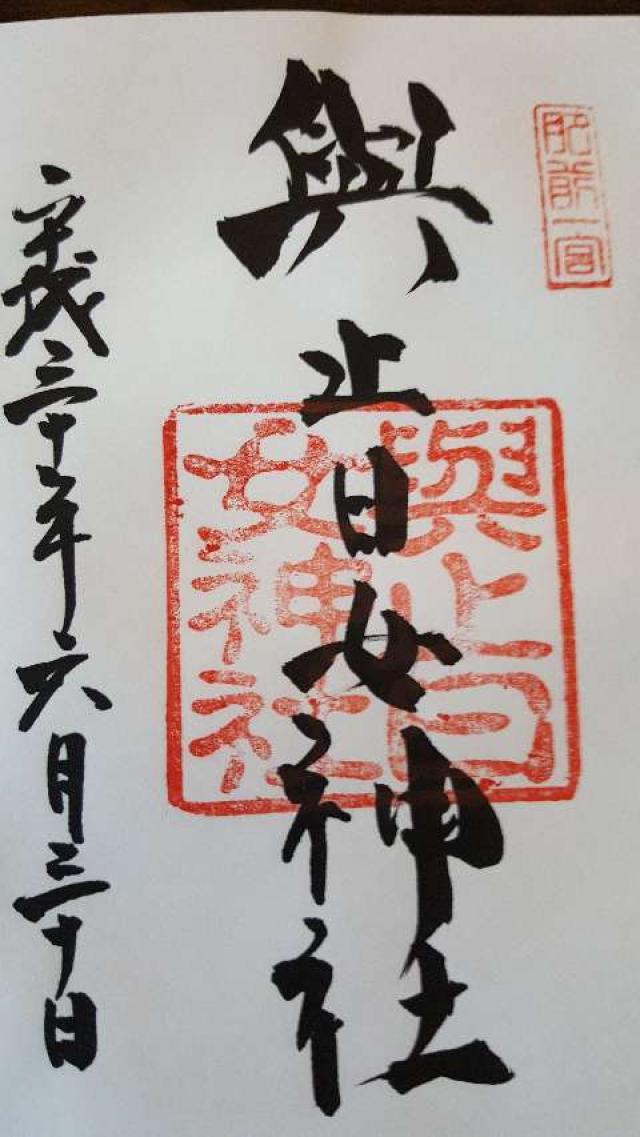 肥前一宮
與止日女神社
與止日女神社
平成三十年六月三十日